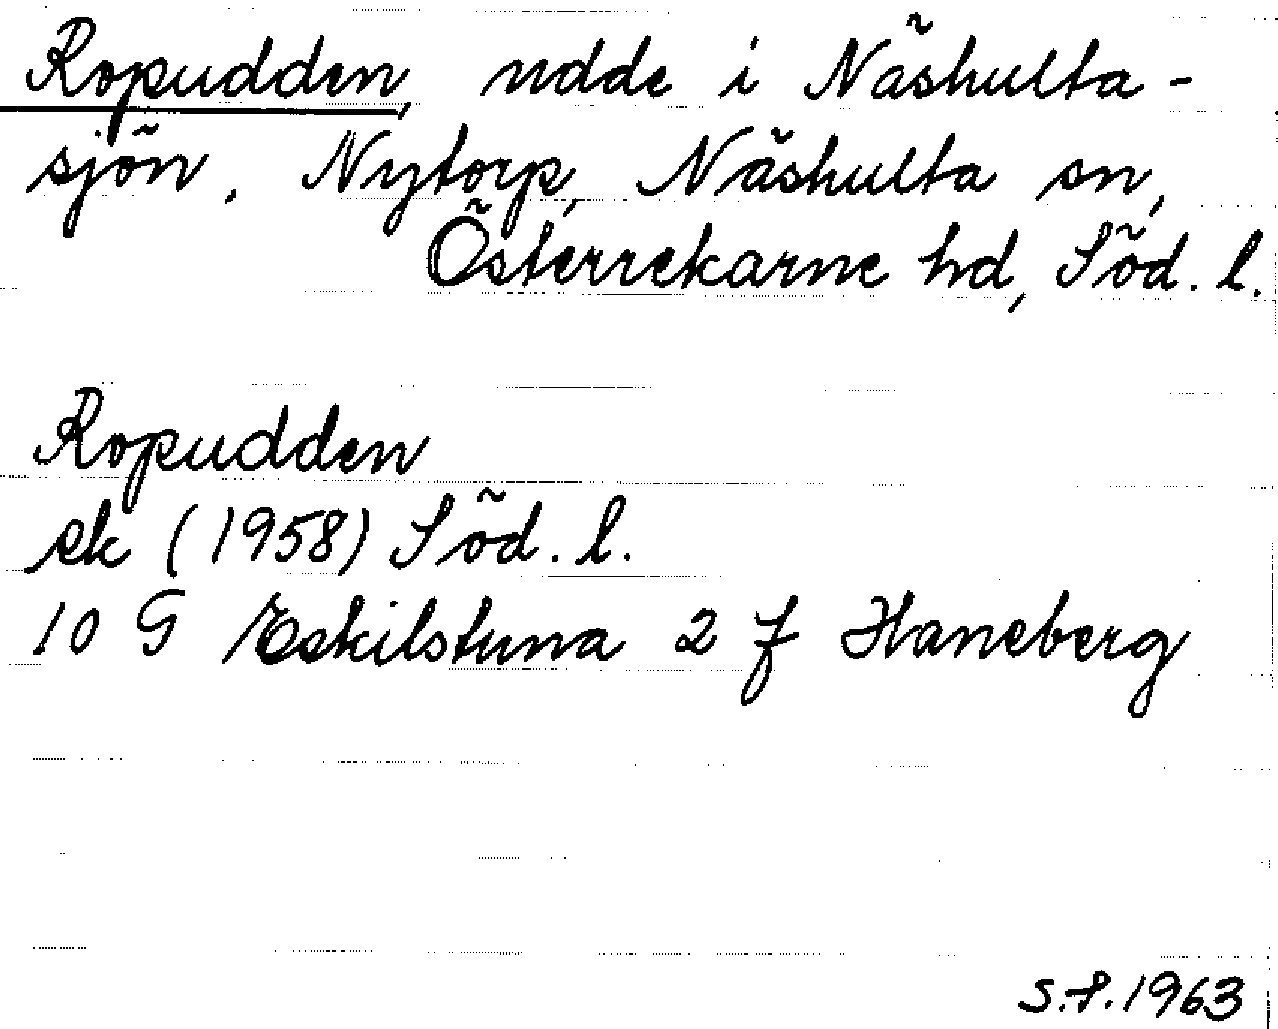 Ropudden, udde i Näshulta-
sjön, Nytorp, Näshulta sn,
Österrekarne hd, Söd. l.
Ropudden
ek (1958) Söd. l.
10 G Eskilstuna 2 f Haneberg
S.P. 1963